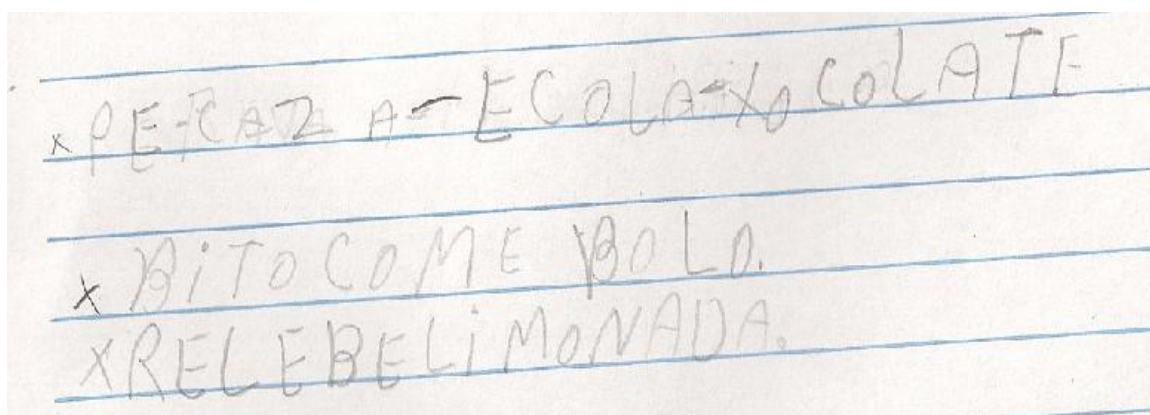 x PE-CAZA-ECOLA-XOCOLATE
x BiTO COME BOLO.
x RELEBELiMONADA.